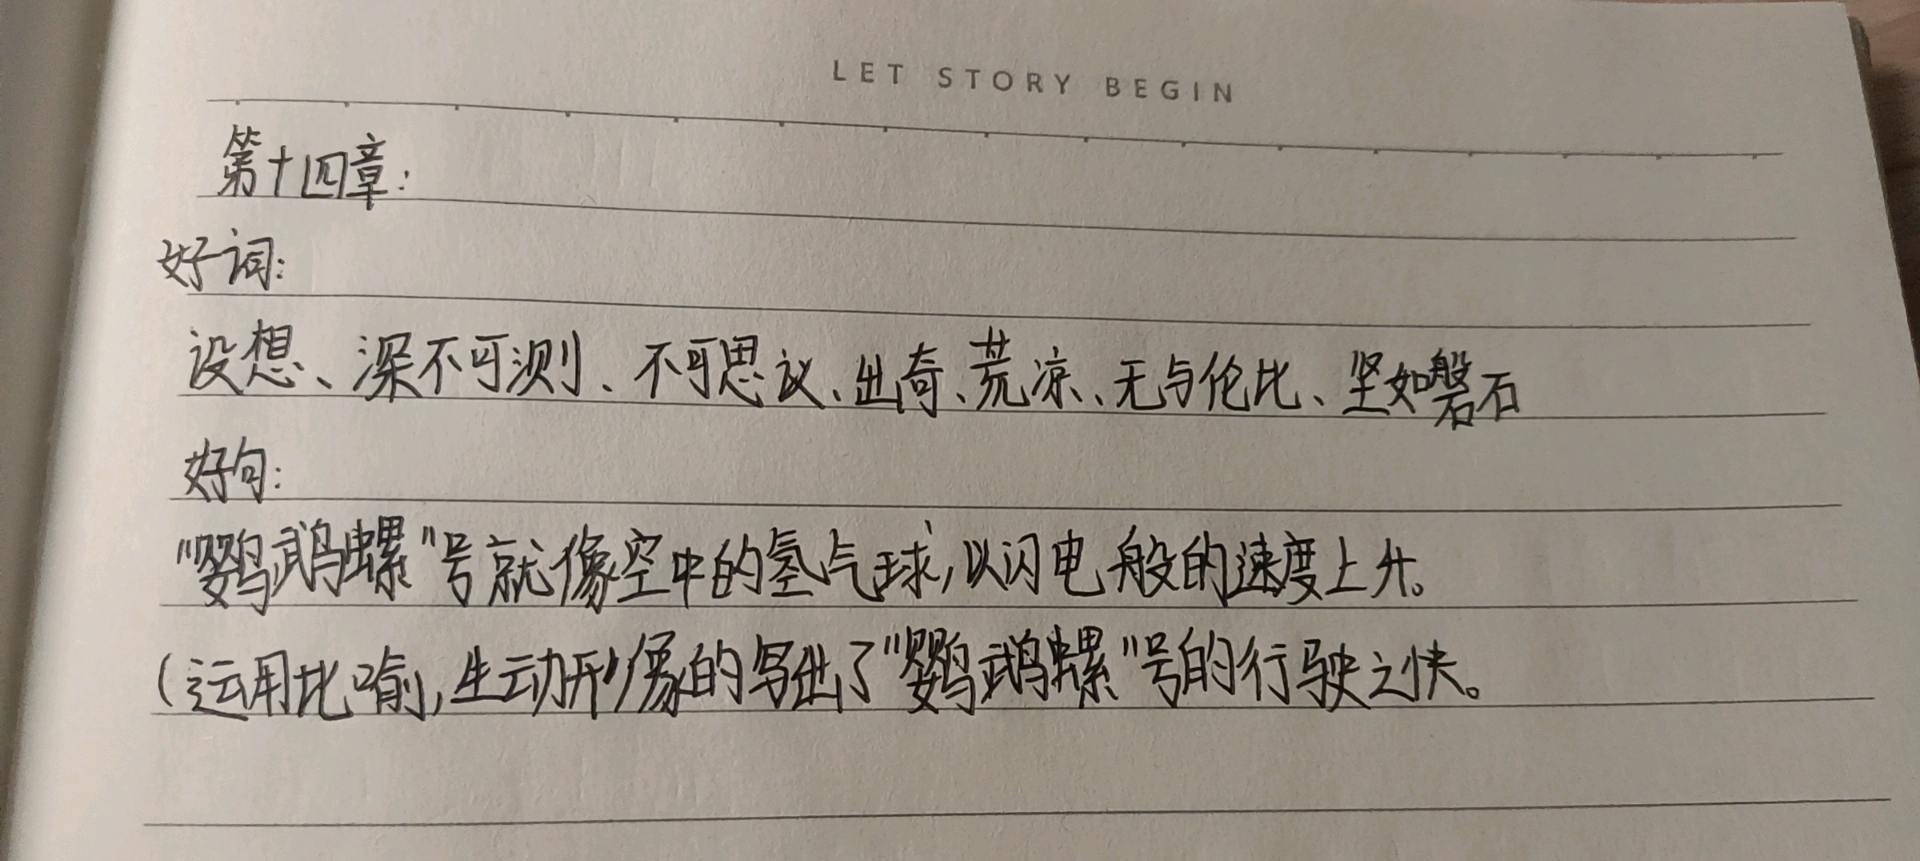 LET STORY BEGIN
第十四章:
好词:
设想、深不可测、不可思议、出奇、荒凉、无与伦比、坚如磐石
好句:
"鹦鹉螺"号就像空中的氢气球,以闪电般的速度上升。
(运用比喻,生动形像的写出了"鹦鹉螺"号的行驶之快。